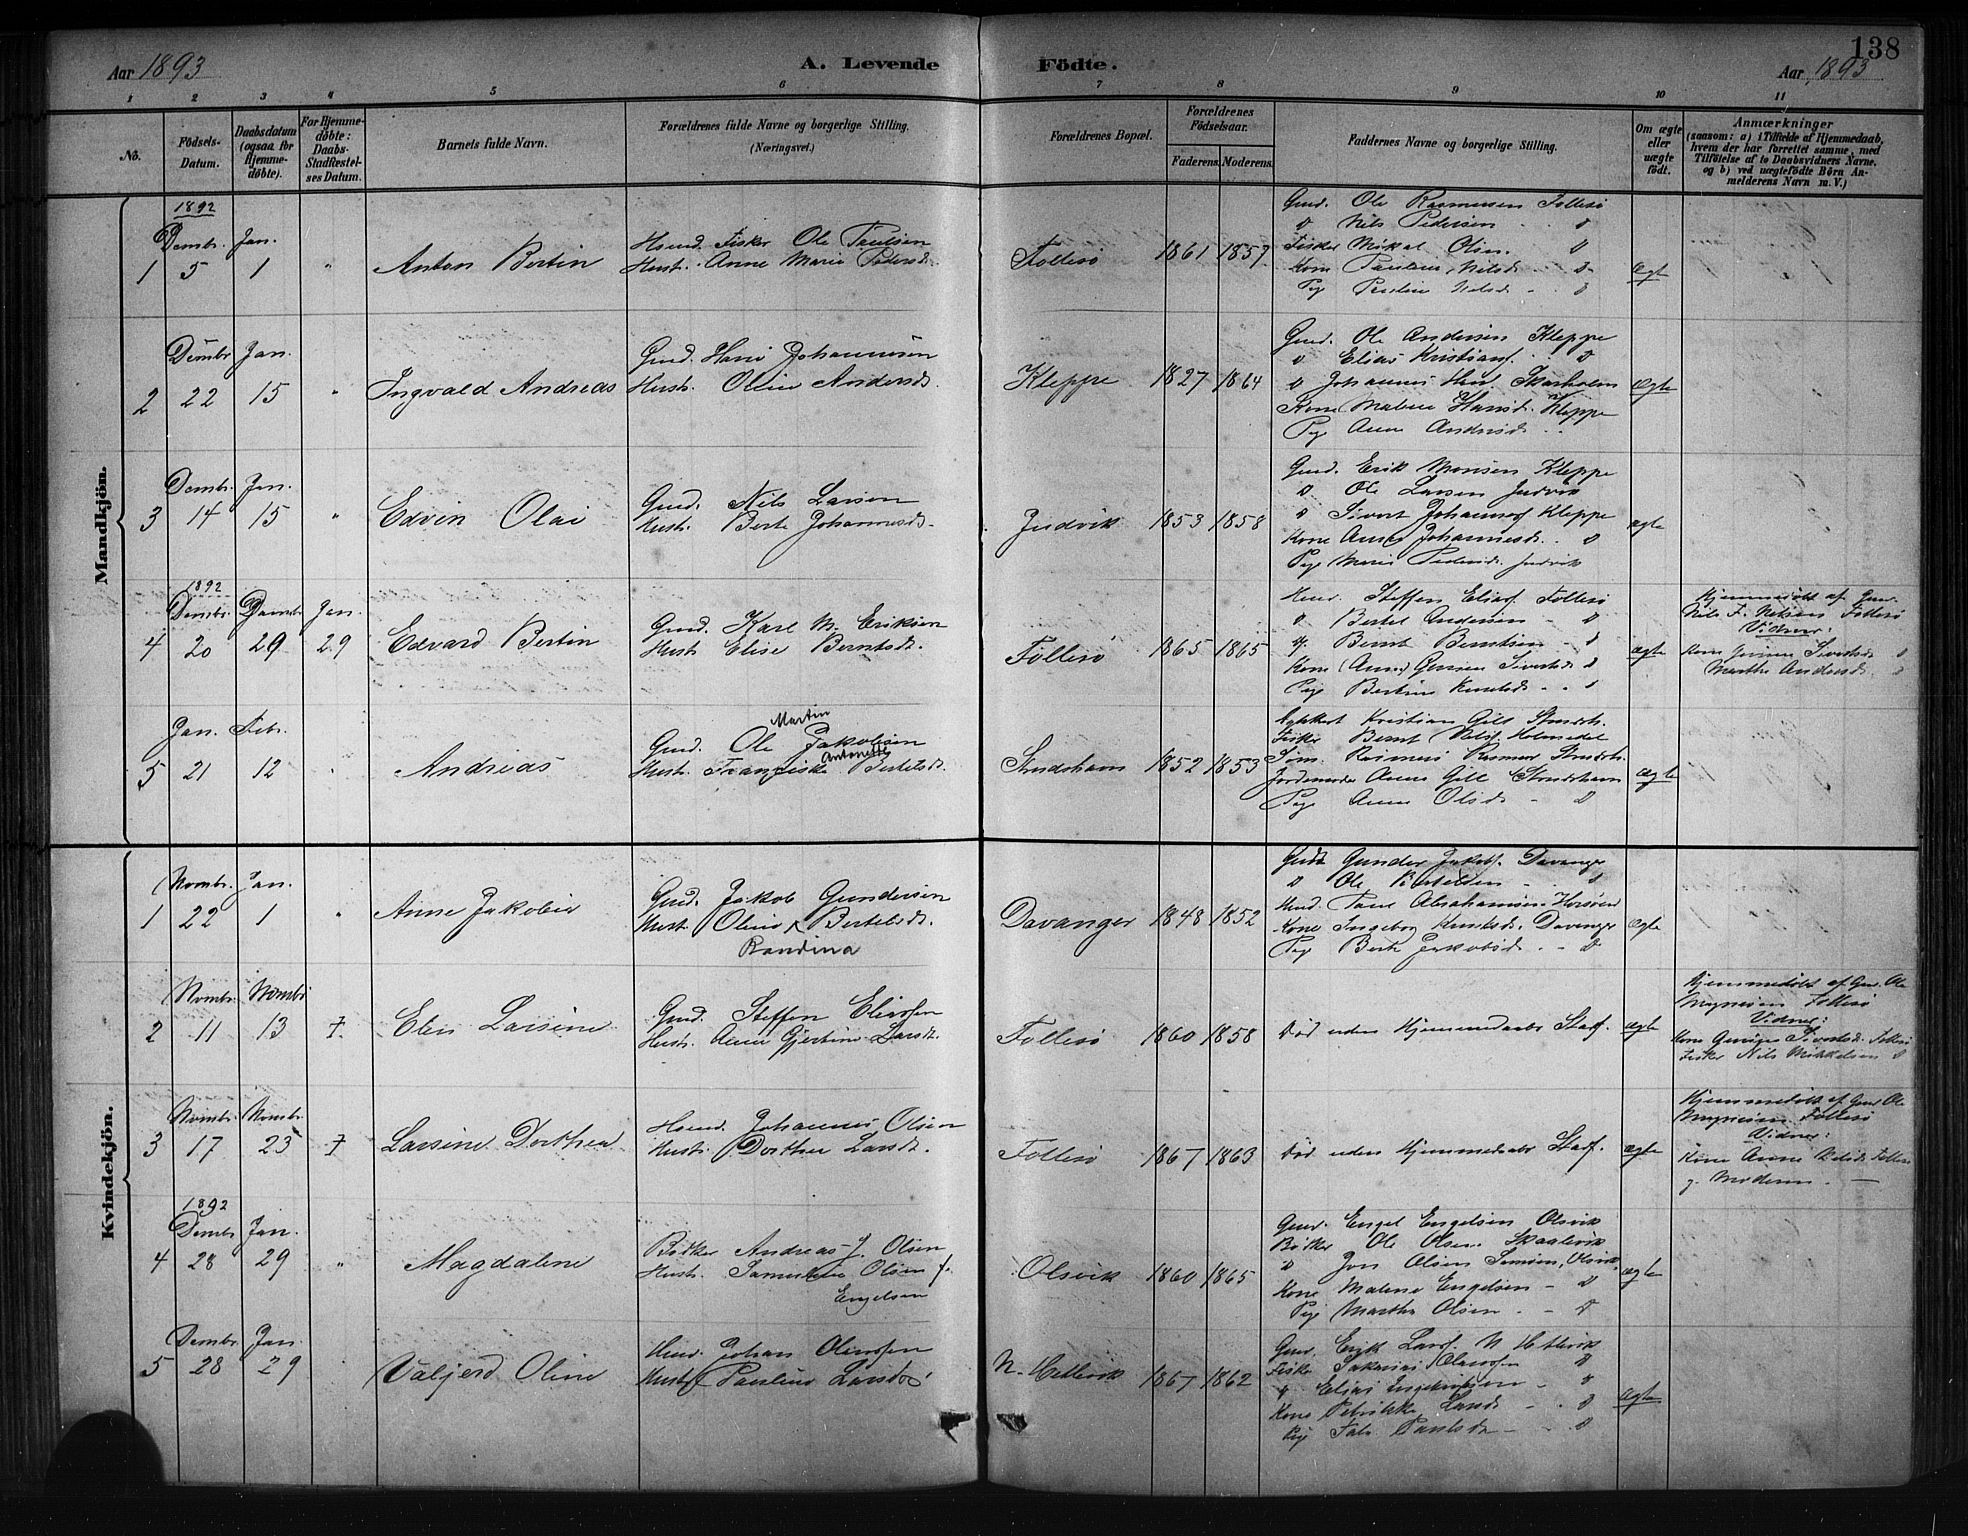 138
Aar 1893
A. Levende Födte.
Aar 1893
1 2 3 4 5 6 7 8 9 10 11
No.
Födsels-Datum.
Daabsdatum (ogsaa for Hjemme-döbte).
For Hjemme-döbte: Daabs-Stadfæstel-ses Datum.
Barnets fulde Navn.
Forældrenes fulde Navne og borgerlige Stilling.
(Næringsvei.)
Forældrenes Bopæl.
Forældrenes Födselsaar.
Faderens. Moderens.
Faddernes Navne og borgerlige Stilling.
Om ægte eller uægte födt.
Anmærkninger
(saasom: a) i Tilfælde af Hjemmedaab, hvem der har forrettet samme, med Tilföielse af to Daabsvidners Navne. og b) ved uægtefödte Börn An-melderens Navn m. V.)
Mandkjön.
1892
Dembr. Jan.
1 5 1 " Anton Bertin
Hsmd. Fisker Ole Paulsen
Hust. Anne Marie Pedersd.
Follesö 1861 1857
Gmd. Ole Rasmussen Follesö
D Nils Pedersen D
Fisker Mikal Olsen D
Kone Nilsd. D
Pige Pauline Nilsd. D
ægte
Dembr Jan.
2 22 15 " Ingvald Andreas
Gmd. Hans Johannessen
Hust. Oline Andersd.
Kleppe 1827 1864
Gmd. Ole Andersen Kleppe
D Elias Kristians. D
D Johannes Skarholm
Kone Malene Hansd. Kleppe
Pige Anne Andersd.
ægte
Dembr. Jan.
3 14 15 " Edvin Olai
Gmd. Nils Larsen
Hust. Berte Johannesd.
Juvik 1853 1858
Gmd. Erik Monsen Kleppe
D Ole Larsen
D Sivert Johannes. Kleppe
Kone Anne Johannesd. D
Pige Marie Pedersd.
ægte
1892
Dembr. Dembr. Jan.
4 20 29 29 Edvard Bertin
Gmd. Karl M. Eriksen
Hust. Elise Berntsd.
Follesö 1865 1865
Steffen Elias. Follesö
D Bertel Andersen D
Bernt Berntsen D
Kone (Anne) Gurine Sivertsd. D
Pige Bertine Knutsd. D
ægte
Hjemmedöbt af Gmd.
Nils F. Nilsen Follesö
Vidner:
Kone Gurine Sivertsd. D
Marthe Andersd. D
Jan. Febr.
5 21 12 Andreas
Martin
Gmd. Ole Jakobsen
Antonette
Hust. Franziska Bertelsd.
Strudshavn 1852 1853
Kristian Gill Strudsh.
Fisker Bernt Nils. Holmedal
Rasmus Rasmus. Strudsh.
Jordemoder Anne Gill Strudshavn
Pige Anne Olsd. D
ægte
Kvindekjön.
Novmbr. Jan.
1 22 1 " Anne Jakobia
Gmd. Jakob Gundersen
Hust. Oline Bertelsd.
Randina
Davanger 1848 1852
Gmd. Gunder Jakobs. Davanger
D Ole Bertelsen D
Abrahamsen
Kone Ingeborg Knutsd. Davanger
Pige Berte Jakobsd. D
ægte
Novmbr. Novmbr
2 11 13 7. Elen Larsine
Gmd. Steffen Eliassen
Hust. Anne Gjertine Larsd.
Follesö 1860 1858
Död uden Hjemmedaabs Staf.
ægte
Hjemmedöbt af Gmd. Ole
Magnesen Follesö
Vidner:
Kone Gurine Sivertsd. Follesö
Fisker Nils Mikkelsen D
Novmbr Novmbr.
3 17 23 7 Larsine Dorthea
Hsmd. Johannes Olsen
Hust. Dorthea Larsd.
Follesö 1867 1863
Död uden Hjemmedaabs Staf.
ægte
Hjemmedöbt af Gmd. Ole
Magnesen Follesö
Vidner:
Kone Anne Nilsd. Follesö
g. Moderen.
1892
Dembr Jan.
4 28 29 " Magdalene
Bödker Andreas J. Olsen
Hust. Olsen f.
Engelsen
Olsvik 1860 1865
Gmd. Engel Engelsen Olsvik
Bödker Ole Olsen Skaalevik
D Jon Olsen Olsvik
Kone Malene Engelsen D
Pige Martha Olsen D
ægte
Dembr Jan
5 28 29 Valjerd Oline
Johan Olsen
Hust. Pauline Larsd.
N. Hetlevik 1867 1862
Gmd. Erik Lars. N. Hetlevik
Fisker Sakarias D
Elias Ingebrigtsen
Kone Petrikke Larsd. D
Pige Paulsd. D
ægte